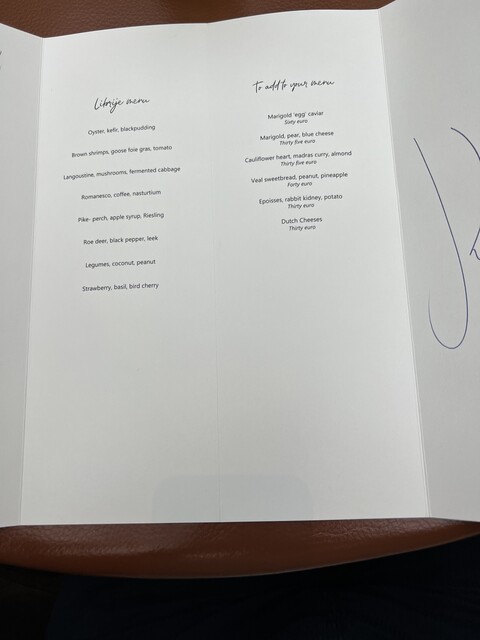 Librije menu
Oyster, kefir, blackpudding
Brown shrimps, goose foie gras, tomato
Langoustine, mushrooms, fermented cabbage
Romanesco, coffee, nasturtium
Pike- perch, apple syrup, Riesling
Roe deer, black pepper, leek
Legumes, coconut, peanut
Strawberry, basil, bird cherry
To add to your menu
Marigold 'egg' caviar
Sixty euro
Marigold, pear, blue cheese
Thirty five euro
Cauliflower heart, madras curry, almond
Thirty five euro
Veal sweetbread, peanut, pineapple
Forty euro
Epoisses, rabbit kidney, potato
Thirty euro
Dutch Cheeses
Thirty euro